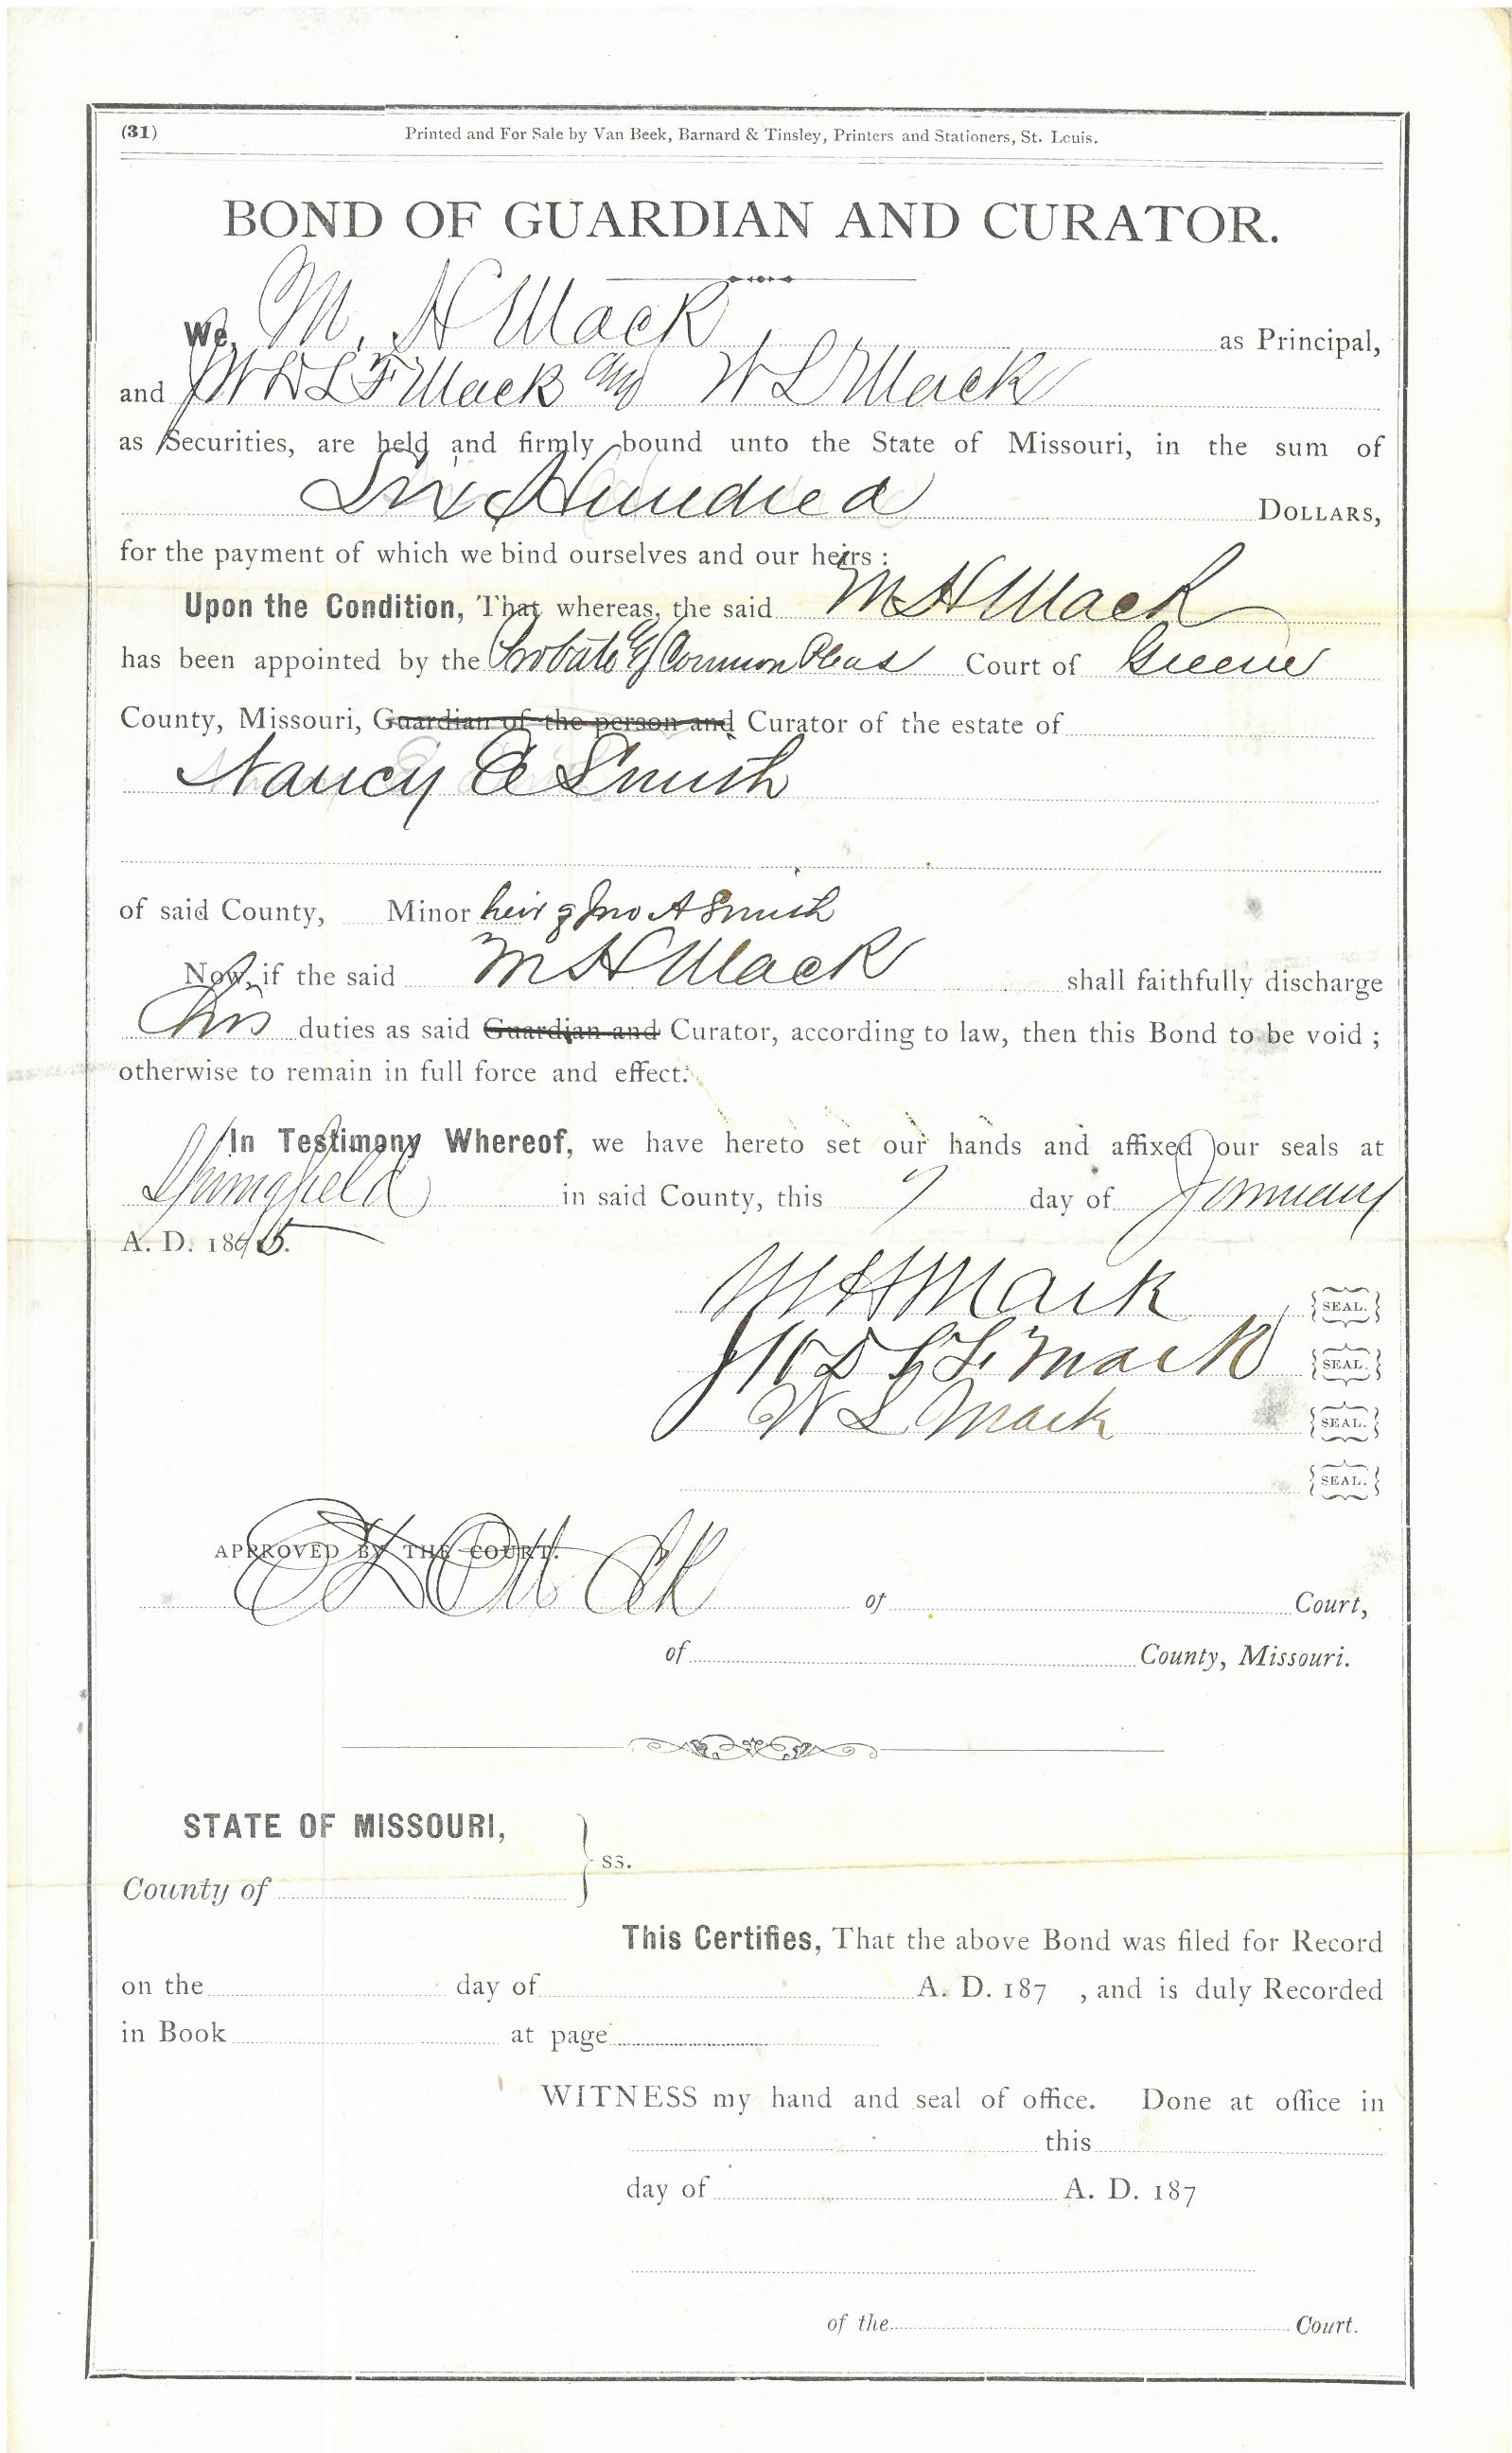 (31) Printed and For Sale by Van Beek, Barnard & Tinsley, Printers and Stationers, St. Louis.
BOND OF GUARDIAN AND CURATOR.
We, M. H Mack as Principal,
and L F Mack and W L Mack
as Securities, are held and firmly bound unto the State of Missouri, in the sum of
Six Hundred DOLLARS,
for the payment of which we bind ourselves and our heirs :
Upon the Condition, That whereas, the said M H Mack
has been appointed by the Probate & Common Pleas Court of Greene
County, Missouri, Guardian of the person and Curator of the estate of
Nancy E Smith
of said County, Minor heir of Jno A Smith
Now, if the said M H Mack shall faithfully discharge
his duties as said Guardian and Curator, according to law, then this Bond to be void ;
otherwise to remain in full force and effect.
In Testimony Whereof, we have hereto set our hands and affixed our seals at
Springfield in said County, this 7 day of January
A. D. 18
M H Mack SEAL.
Mack SEAL.
W L Mack SEAL.
SEAL.
APPROVED BY THE COURT.
of Court,
of County, Missouri.
STATE OF MISSOURI,
ss.
County of
This Certifies, That the above Bond was filed for Record
on the day of A. D. 187 , and is duly Recorded
in Book at page
WITNESS my hand and seal of office. Done at office in
this
day of A. D. 187
of the Court.